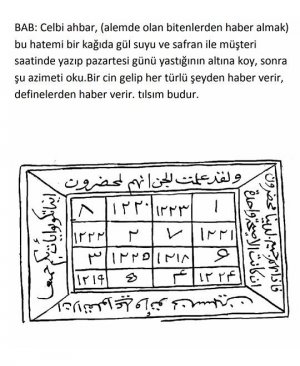 BAB: Celbi ahbar, (alemde olan bitenlerden haber almak)
bu hatemi bir kağıda gül suyu ve safran ile müşteri
saatinde yazıp pazartesi günü yastığının altına koy, sonra
şu azimeti oku.Bir cin gelip her türlü şeyden haber verir,
definelerden haber verir. tılsım budur.
ولقد علمت الجن انهم لمحضرون
ان كانت الا صيحة واحدة
فاذاهم جميع لدينا محضرون
٨ ١٢٢٠ ١٢٢٣ ١
١٢٢٢ ٢ ٧ ١٢٢١
٣ ١٢٢٥ ١٢١٨ ٦
١٢١٩ ٥ ٤ ١٢٢٤
جميعا